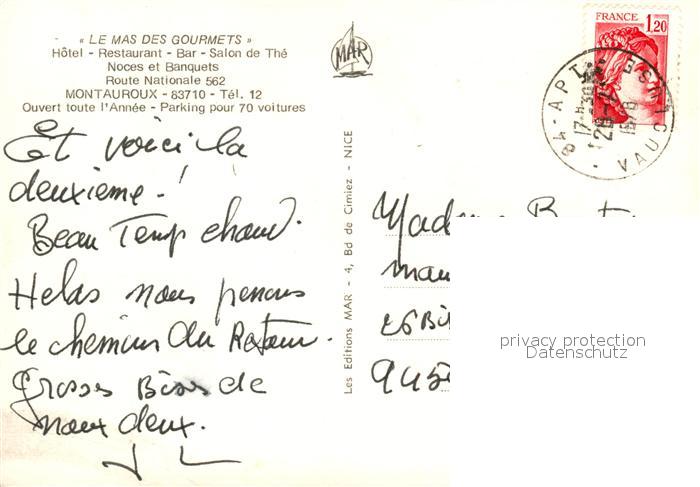 « LE MAS DES GOURMETS »
Hôtel - Restaurant - Bar - Salon de Thé
Noces et Banquets
Route Nationale 562
MONTAUROUX - 83710 - Tél. 12
Ouvert toute l'Année - Parking pour 70 voitures
MAR
FRANCE 1,20
84 - APT
17 H 30
1978
VAUCLUSE
Et voici la
deuxième !
Beau Temp chaud.
Helas nous penons
le chemins du Retour.
Grosses Bises de
nous deux.
J L
Les Editions MAR - 4, Bd de Cimiez - NICE
Madame
26 Bis
945
privacy protection
Datenschutz